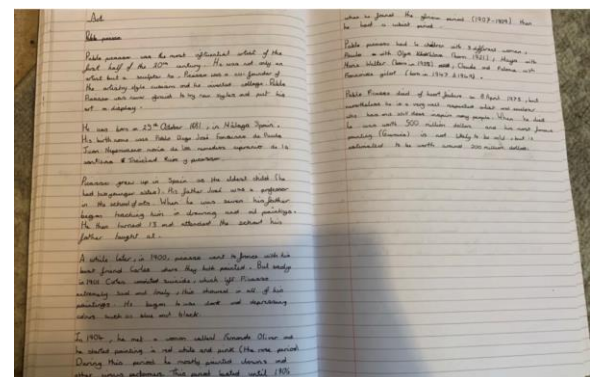 Art
Pablo picasso
Pablo picasso was the most influential artist of the
first half of the 20th century. He was not only an
artist but a sculptor to. Picasso was a co-founder of
the artistry style cubism and he invented collage. Pablo
Picasso
art on display.
He was born in 25th October 1881, in Malaga Spain.
His birth name was Pablo Diego José Francisco de Paula
Juan Nepomuceno maria de los remedios cipriano de la
santisima Trinidad Ruiz y picasso.
Picasso grew up in Spain as the oldest child (he
had two younger sisters). His father José was a professor
in the school of arts. When he was seven his father
began teaching him in drawing and oil paintings.
He then turned 13 and attended the school his
father taught at.
A while later, in 1900, picasso went to france with his
best friend Carlos where they both painted. But
in 1901 Carlos commited suicide, which left Picasso
extremely sad and lonely, this showed in all of his
paintings. He began to use dark and depressing
colours such as blue and black.
In 1904, he met a woman called Fernande Oliver and
he started painting in red white and pink (the rose period)
During this period he mostly painted clowns and
other circus performers. This period lasted until 1906
when he found the period (1907-1909) then
he had a cubist period.
Pablo picasso had 4 children with 3 different women,
Paulo with Olga Khokhlova (born 1921), Maya with
Marie Walter (born in 1935) and, Claude and Paloma with
gilot (born in 1947 & 1949).
Pablo Picasso died of heart failure on 8 April 1973, but
nonetheless he is a very well respected artist and sculptor
who has and will inspire many people. When he died
he was worth 500 million dollars and his most famous
painting (Guernica) is not likely to be sold, but is
estimated to be worth around 200 million dollars.